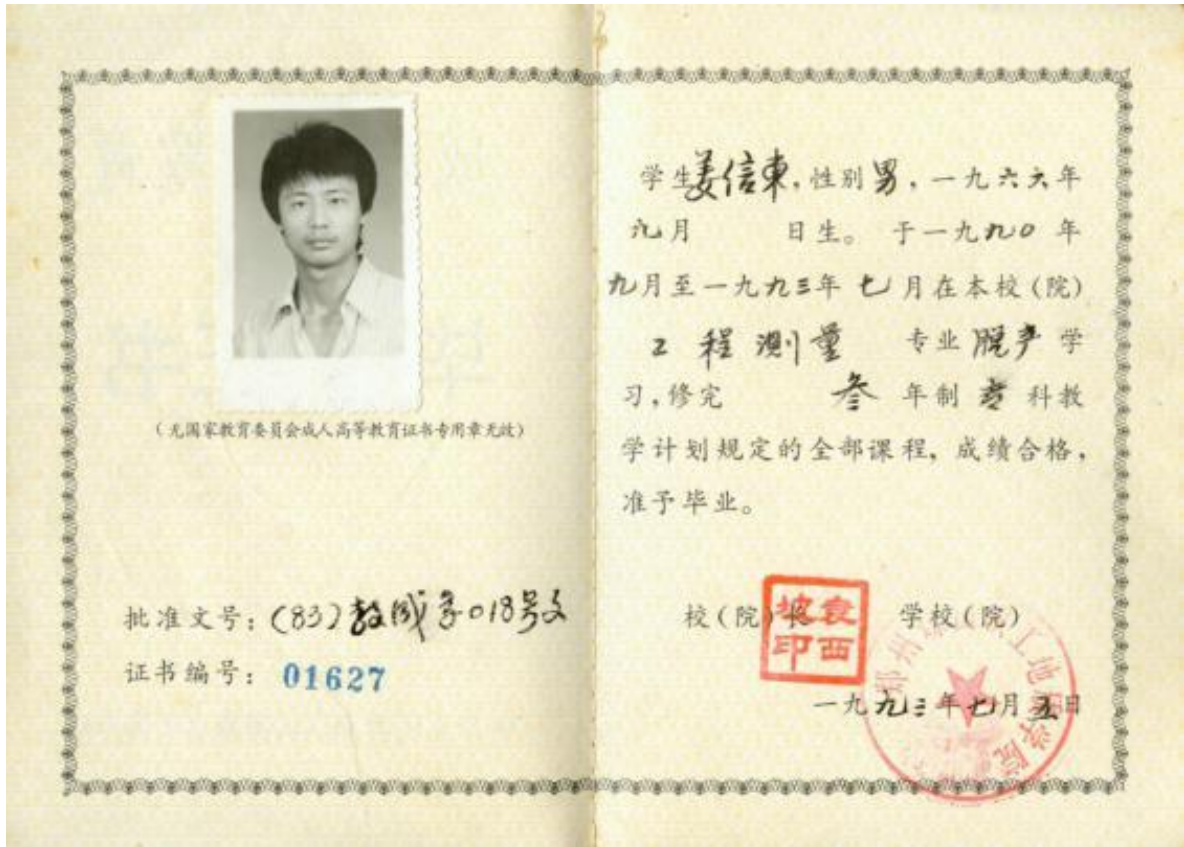 (无国家教育委员会成人高等教育证书专用章无效)
批准文号：(83)教成字018号文
证书编号：01627
学生姜信東，性别男，一九六六年
九月 日生。于一九九〇年
九月至一九九三年七月在本校(院)
工程测量 专业脱产学
习，修完 叁年制专科教
学计划规定的全部课程，成绩合格，
准予毕业。
校(院)长 学校(院)
袁西坡印
一九九三年七月五日
郑州 工地 学院